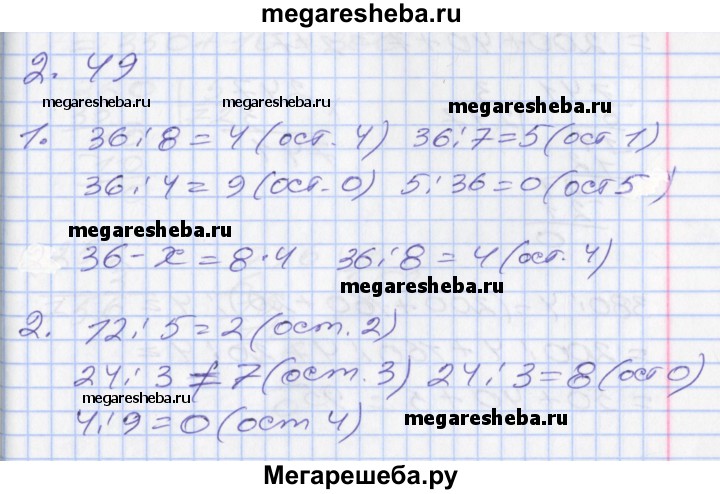 megaresheba.ru
2. 49
megaresheba.ru megaresheba.ru megaresheba.ru
1. 36:8=4(ост. 4) 36:7=5(ост 1)
36:4=9(ост. 0) 5:36=0(ост 5)
megaresheba.ru
36-x=8·4 36:8=4(ост. 4)
megaresheba.ru
2. 12:5=2(ост. 2)
24:3≠7(ост. 3) 24:3=8(ост 0)
megaresheba.ru megaresheba.ru
4:9=0(ост 4)
Мегарешеба.ру